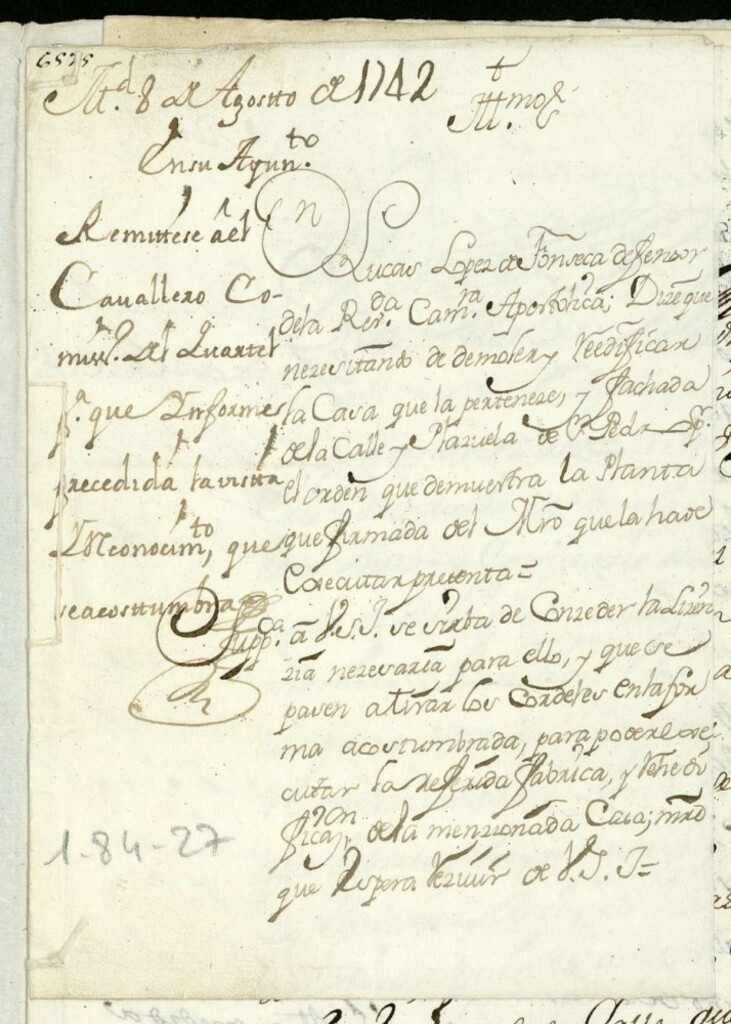 6595
Md. 8 de Agostto de 1742
En su Ayunto.
Remittese al
Cavallero Co-
miss. del Quartel
pa. que Informe
precedida la visita
y Reconocimto, que
se acosttumbra
+
Illmo. Sr.
Lucas Lopez de Fonseca defensor
de la Revda. Camra. Apostolica; Dize que
nezesitando de demoler y Reedificar
la Casa que la perteneze, y fachada
de la Calle y Plazuela de Sn. Pedro
el orden que demuestra la Planta
que firmada del Mro que la ha de
Executar presenta =
Suppca. a V.S.I. se sirba de Conzeder la Lizen
zia nezesaria para ello, y que se
pasen a tirar los Cordeles en la for
ma acostumbrada, para poder exe
cutar la referida fabrica, y Rehedi
ficazion, de la menzionada Casa; mrd
que Espera Rezivir de V.S.I =
1-84-27